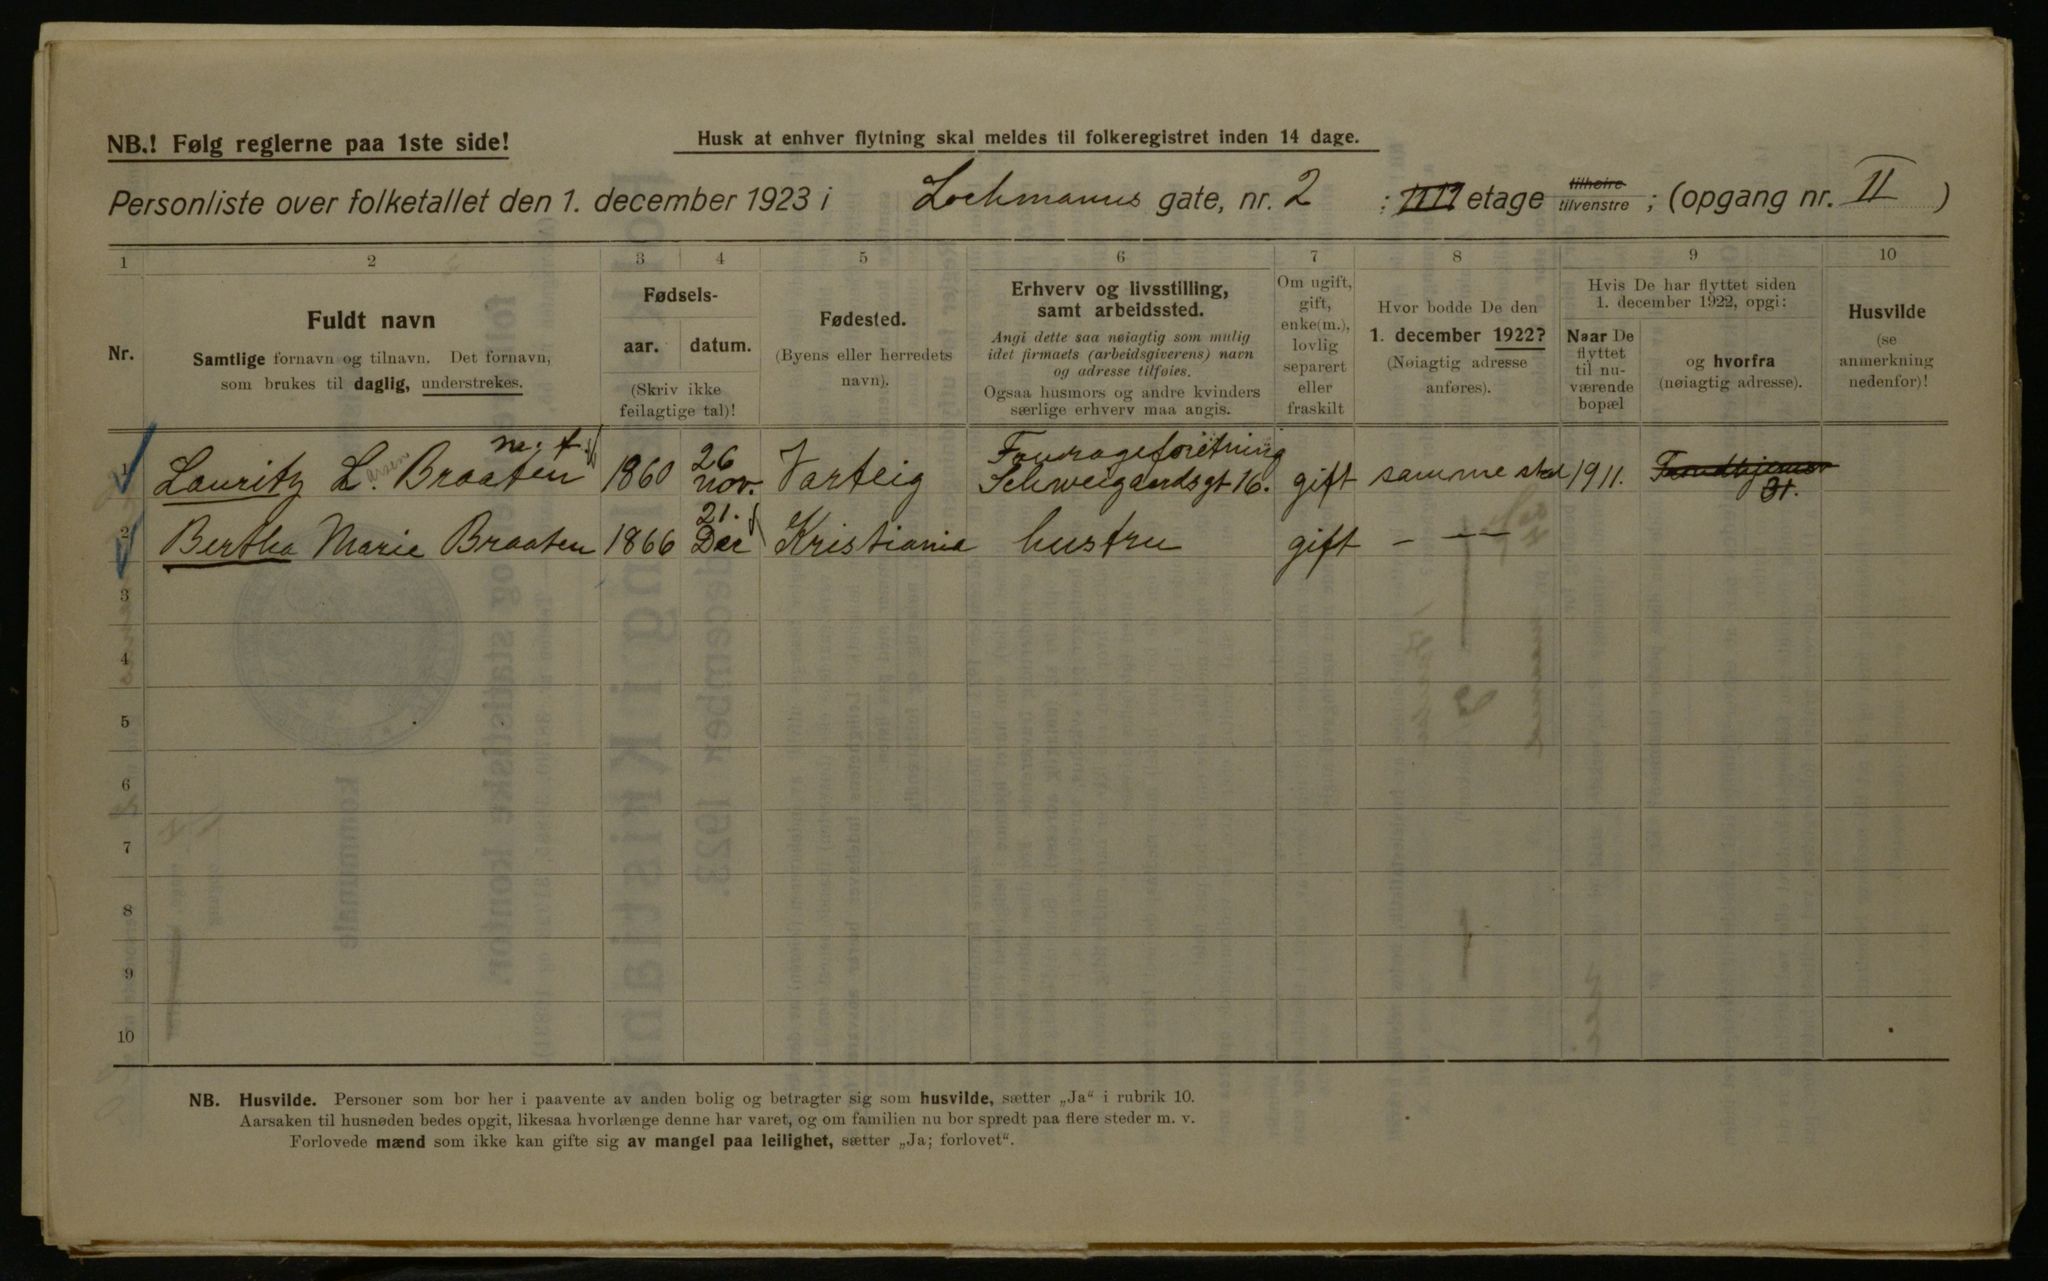 NB.! Følg reglerne paa 1ste side!
Husk at enhver flytning skal meldes til folkeregistret inden 14 dage.
Personliste over folketallet den 1. december 1923 i Lochmanns gate, nr. 2 ; etage tilhøire tilvenstre ; (opgang nr. II )
1 2 3 4 5 6 7 8 9 10
Nr.
Fuldt navn
Samtlige fornavn og tilnavn. Det fornavn,
som brukes til daglig, understrekes.
Fødsels-
aar. datum.
(Skriv ikke
feilagtige tal)!
Fødested.
(Byens eller herredets
navn).
Erhverv og livsstilling,
samt arbeidssted.
Angi dette saa nøiagtig som mulig
idet firmaets (arbeidsgiverens) navn
og adresse tilføies.
Ogsaa husmors og andre kvinders
særlige erhverv maa angis.
Om ugift,
gift,
enke(m.),
lovlig
separert
eller
fraskilt
Hvor bodde De den
1. december 1922?
(Nøiagtig adresse
anføres).
Hvis De har flyttet siden
1. december 1922, opgi:
Naar De
flyttet
til nu-
værende
bopæl
og hvorfra
(nøiagtig adresse).
Husvilde
(se
anmerkning
nedenfor)!
1 Lauritz L. arsen Braaten 1860 26 nov. Varteig Fourageforetning Schweigaardsgt 16. gift samme sted 1911.
2 Bertha Marie Braaten 1866 21. Dec Kristiania hustru gift - — —
3
4
5
6
7
8
9
10
NB. Husvilde. Personer som bor her i paavente av anden bolig og betragter sig som husvilde, sætter „Ja“ i rubrik 10.
Aarsaken til husnøden bedes opgit, likesaa hvorlænge denne har varet, og om familien nu bor spredt paa flere steder m. v.
Forlovede mænd som ikke kan gifte sig av mangel paa leilighet, sætter „Ja; forlovet“.